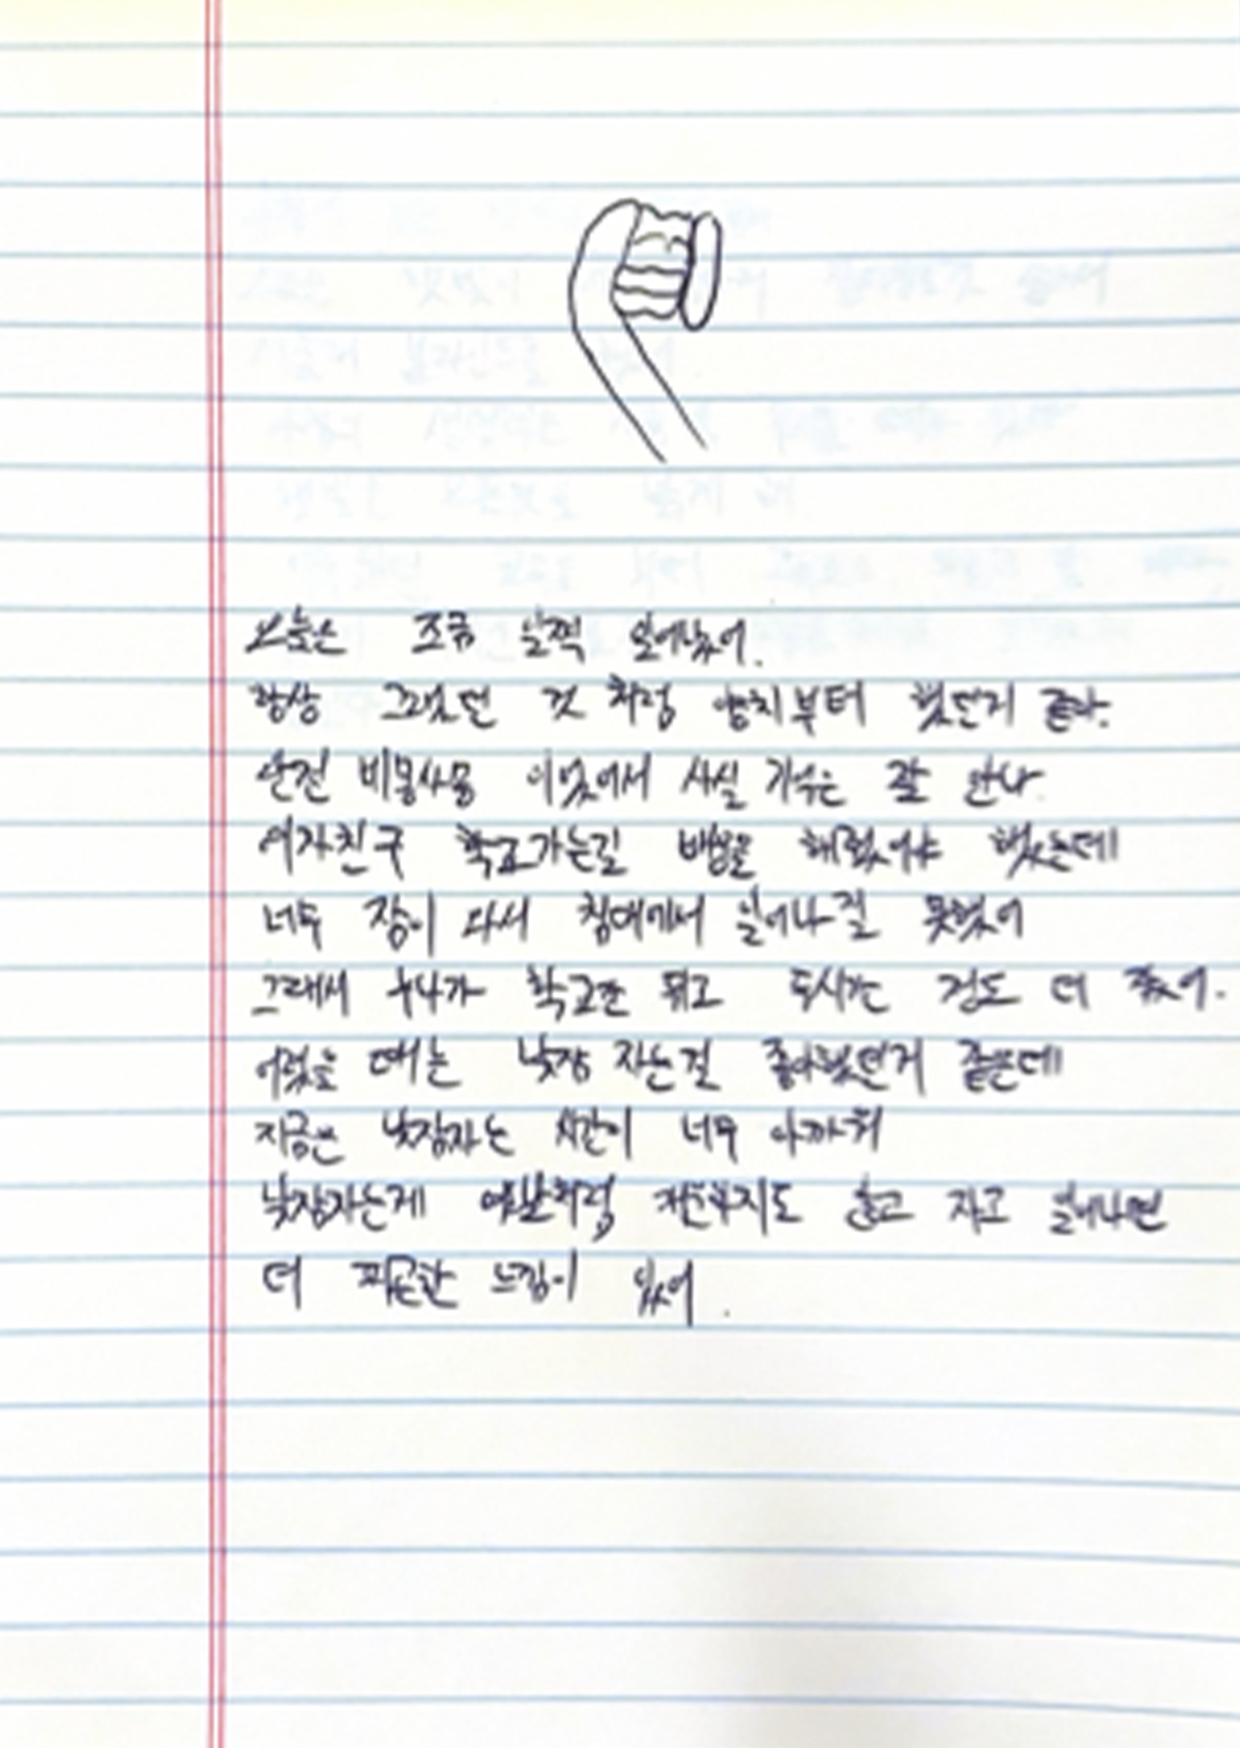 오늘은 조금 일찍 일어났어.
항상 그랬던 것 처럼 양치부터 했던거 같다.
완전 비몽사몽 이었어서 사실 기억은 잘 안나
여자친구 학교가는길 배웅을 해줬어야 했는데
너무 잠이 와서 침대에서 일어나질 못했어
그래서 누나가 학교간 뒤고 두시간 정도 더 잤어.
어렸을 때는 낮잠 자는걸 좋아했던거 같은데
지금은 낮잠자는 시간이 너무 아까워
낮잠자는게 개운하지도 않고 자고 일어나면
더 피곤한 느낌이 있어.